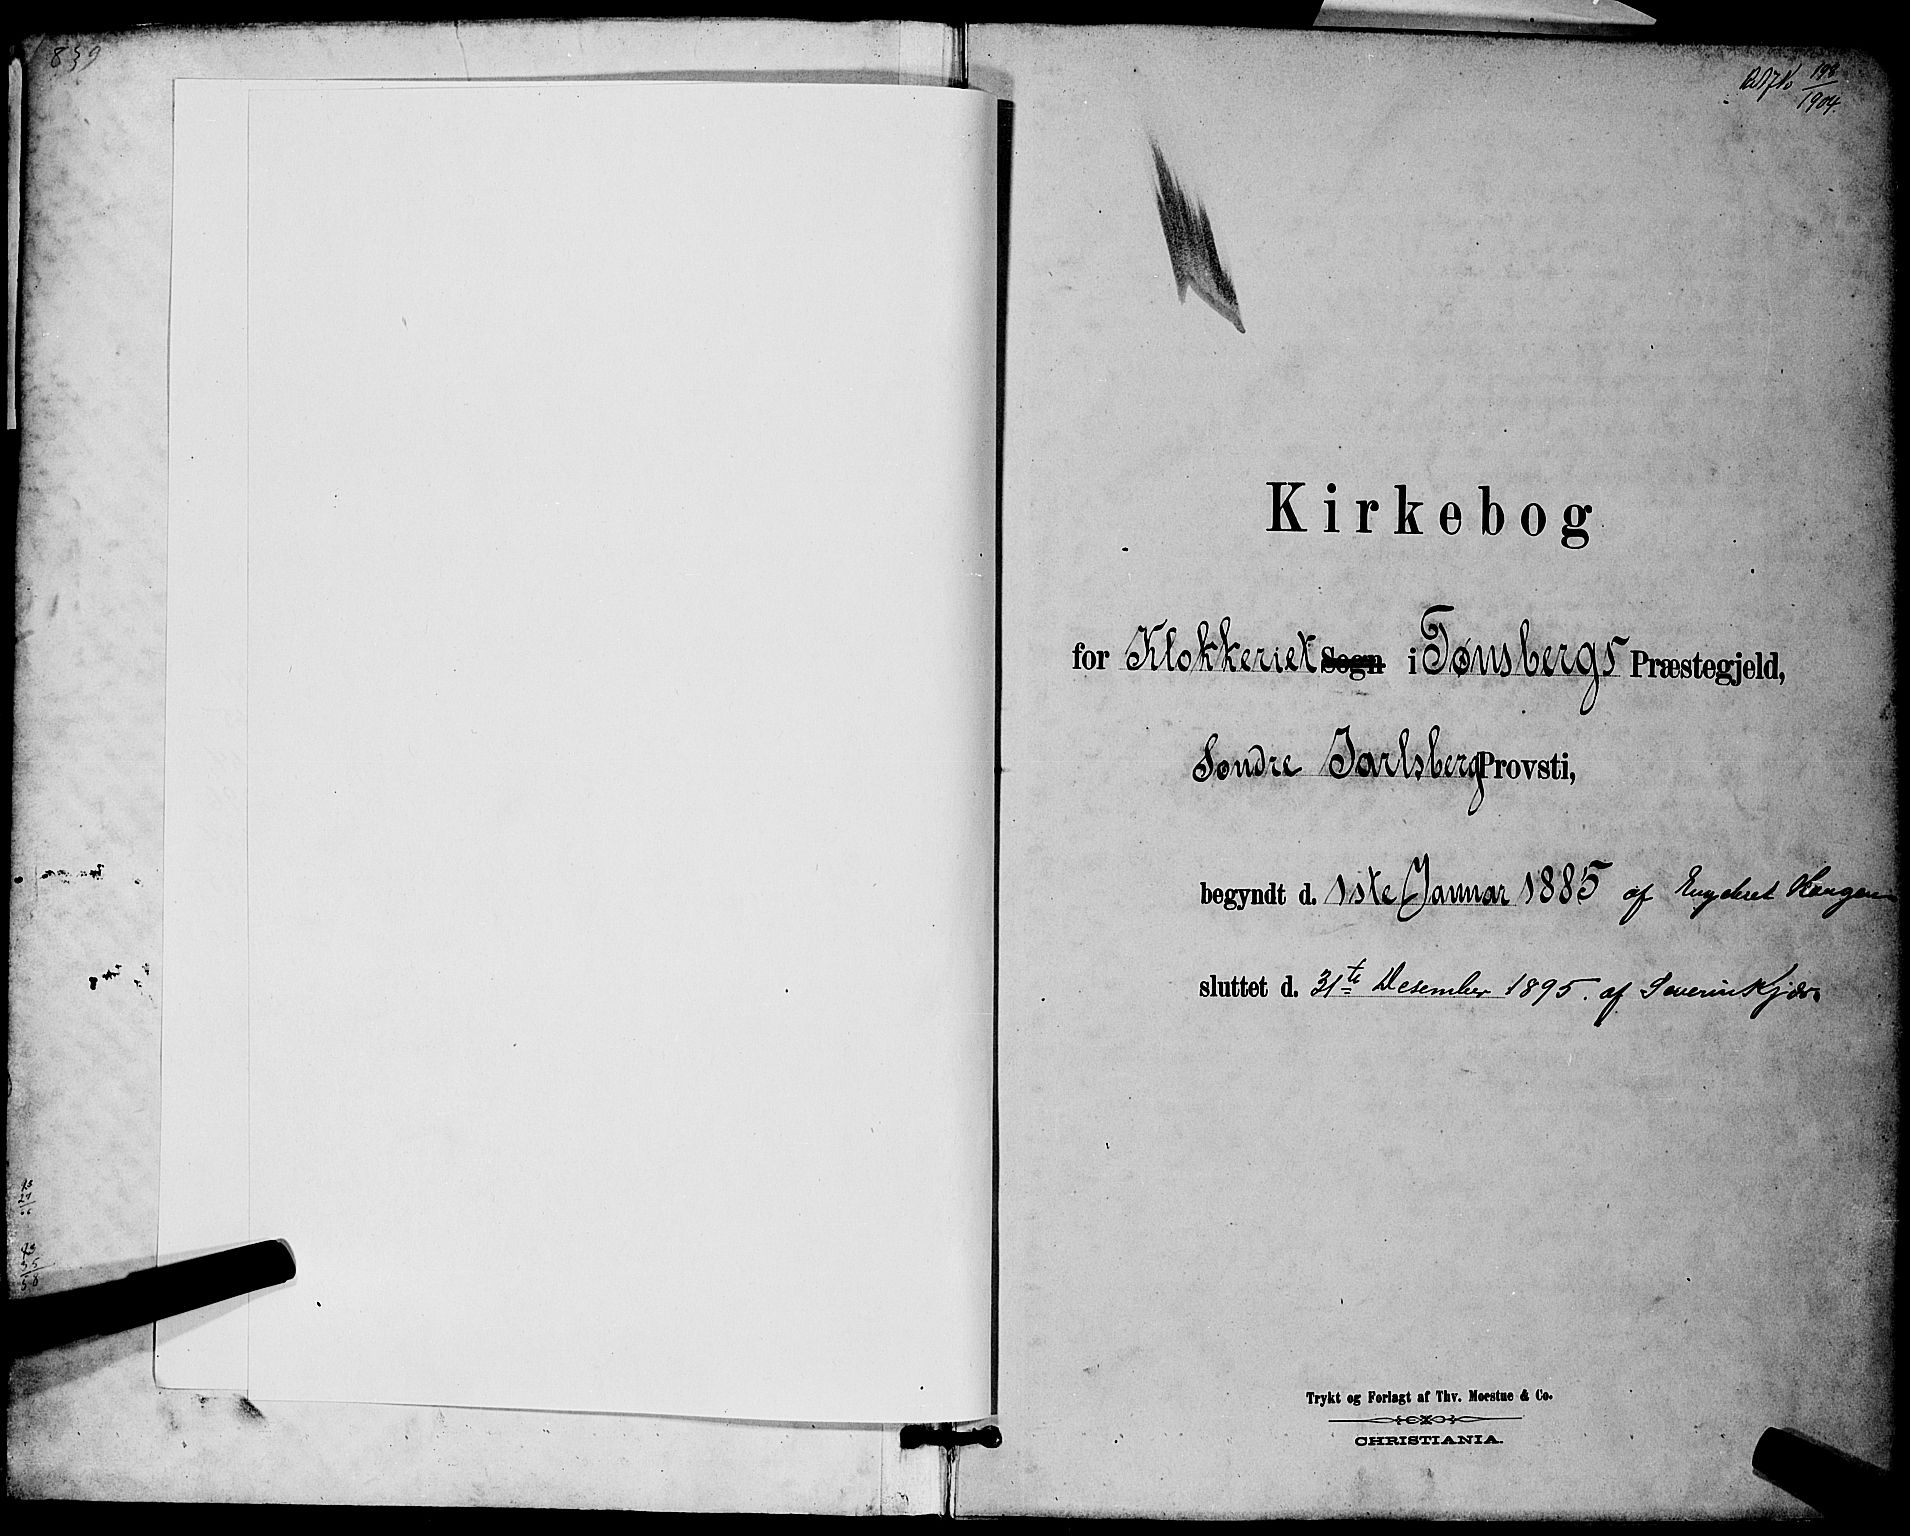 839
198
1904.
Kirkebog
for Klokkeriet Sogn i Tønsbergs Præstegjeld,
Søndre Jarlsberg Provsti,
begyndt d. 1ste Januar 1885 af
sluttet d. 31te Desember 1895. af Severin Kjær
Trykt og Forlagt af Thv. Moestue & Co.
CHRISTIANIA.